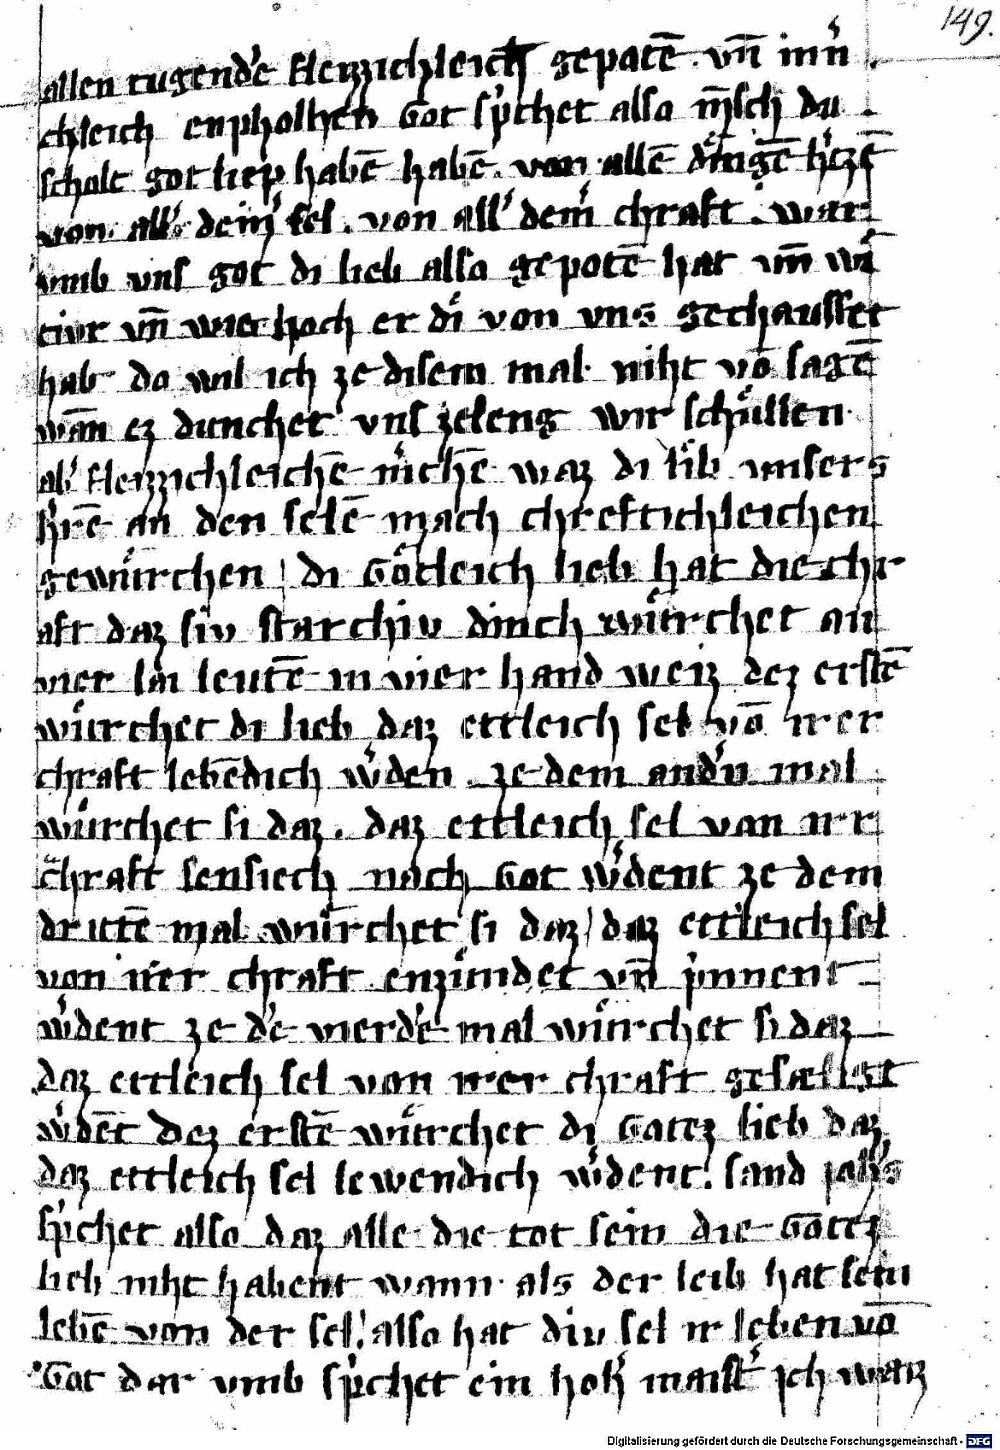 149.
allen tugend'e fleizzichleich gepotē vn̄ inn'
chleich enpholhen Got sp'chet also m̄sch du
scholt got liep habē habē von allē dingē h'czē
von all' dein' sel. von all' dein' chraft. war
vmb vns got di lieb also gepotē hat vn̄ wā
tiwr vn̄ wie hoch er di von vns gechauffet
hab do wil ich ze disem mal niht vō sagē
wān ez dunchet vns ze leng wir schüllen
ab' fleizzichleichē m'chē waz di lib vnsers
h'rē an den selē mach chreftichleichen
gewürchen di Götleich lieb hat die chr
aft daz siv starchiv dinch würchet an
vier leutē in vier hand weiz dez erstē
würchet di lieb daz ettleich sel vō irer
chraft lebēdich w'den ze dem and'n mal
würchet si daz. daz ettleich sel von irr
chraft sensiech nach Got w'dent ze dem
drittē mal würchet si daz daz ettleich sel
von irer chraft enzündet vn̄ prinnent
w'dent ze d'e vierd'e mal würchet si daz
daz ettleich sel von irer chraft gesæligt
w'dēt Dez erstē würchet di Gotez lieb daz
daz ettleich sel lewendich w'dent. sand joh's
sp'chet also daz alle die tot sein die Gotez
lieb niht habent wann als der leib hat sein
lebē von der sel also hat div sel ir leben vō
Got dar vmb sp'chet ein hoh' maist' ich waiz
Digitalisierung gefördert durch die Deutsche Forschungsgemeinschaft - DFG